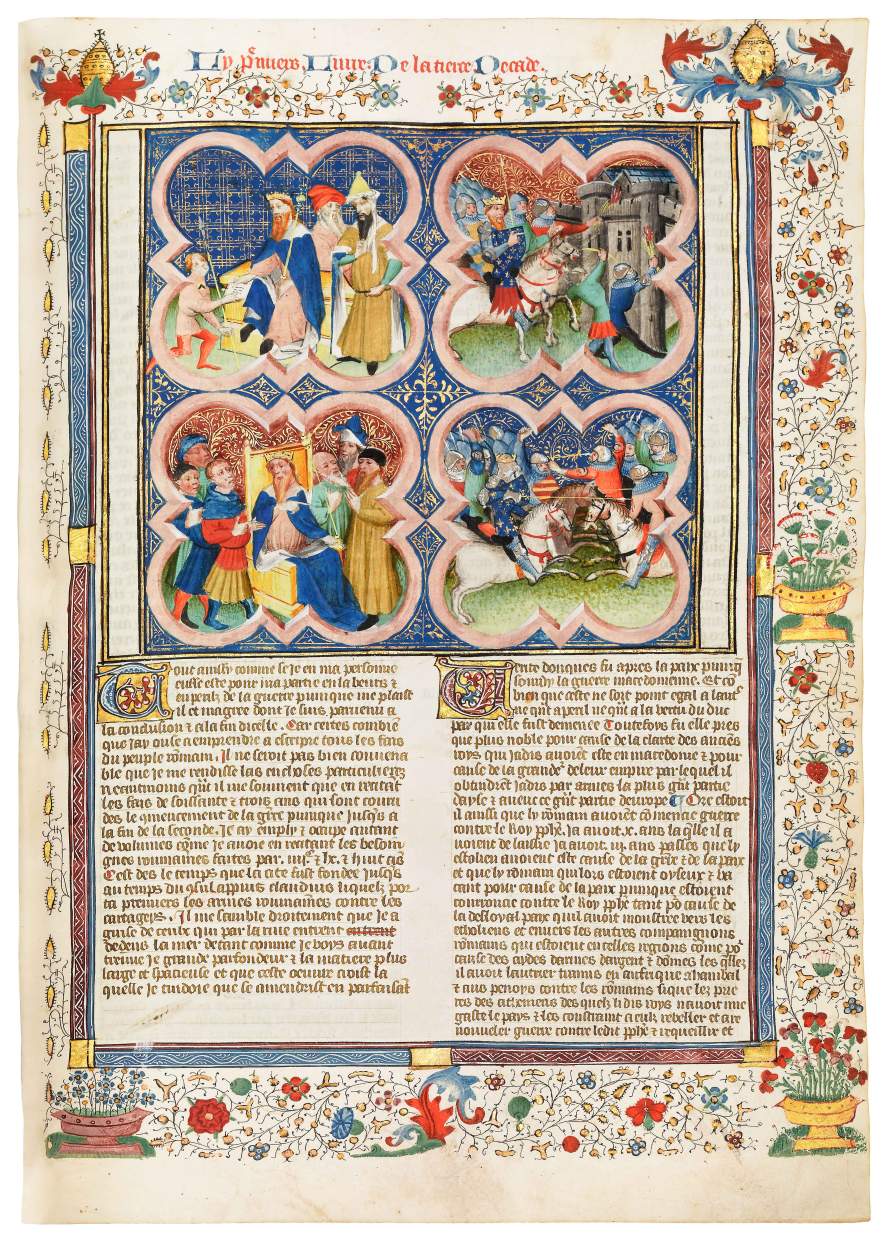 Ly p̃miers Liure De la tierce Decade.
Tout ainssy comme se Je en ma personne
eusse este pour ma partie en la beurs &
en perilz de la guerre punique me plaist
il et magree dont Je suis paruenu a
la conclusion & a la fin dicelle. Car certes combiẽ
que Jay ouse a emprendre a escripre tous les fais
du peuple rõmain. Il ne seroit pas bien conuena
ble que Je me rendisse las en closes particulieres
neantmoins qũt il me souuient que en recitãt
les fais de soissante & trois ans qui sont couru
des le cõmencement de la gr̃re punique Jusq̃s a
la fin de la seconde. Je ay emply & ocupe autant
de volumes cõme Je auoie en recitant les besoin
gnes roumaines faites par. iiijᶜ & lx. & huit ans
Cest des le temps que la cite fust fondee Jusq̃s
au temps du 9sul appius claudius liquelz por
ta premiers les armes roumaines contre les
cartagẽs. Il me semble droitement que Je a
guise de ceulx qui par la riue entrent entrent
dedens la mer de tant comme Je voys auant
treuue Je grande parfondeur & la matiere plus
large et spacieuse et que ceste oeuure croist la
quelle Je cuidoie que se amendrist en parfaisãt
Vente donques fu apres la paix puniq̃
souuịdy la guerre macedonienne. Et cõ
bien que ceste ne soit point egal a lautr̃
ne qũt a peril ne qũt a la vertu du duc
par qui elle fust demenee Toutefoys fu elle pres
que plus noble pour cause de la clarte des anciẽs
roys qui Jadis auoiẽt este en macedone & pour
cause de la grandeʳ de leur empire par lequel il
obtindrẽt Jadis par armes la plus gũt partie
dayse & auuec ce gũt partie deurope ¶ Ore estoit
il ainssi que ly rõmain auoiẽt cõmencie guerre
contre le Roy pħe. Ja auoit .x. ans laq̃lle il a
uoient delaissie Ja auoit. iij. ans passes que ly
etolien auoient este cause de la gr̃re & de la paix
et que ly rõmain qui lors estoient oyseux & va
cant pour cause de la paix punique estoient
courroucie contre le Roy pħe tant põ cause de
la desloyal paix quil auoit monstree vers les
etholiens et enuers les autres compaignons
rõmains qui estoient en celles regions cõme põ
cause des aydes darmes dargent & dõmes les q̃lles
il auoit lautrier tramis en auffrique a hanibal
& aus penoys contre les rõmains si que les prie
res des atheniens desquelz li dis roys auoit
gaste le pays & les constraint a eulx rebeller et a re
nouueler guerre contre ledit pħe & requeillir et